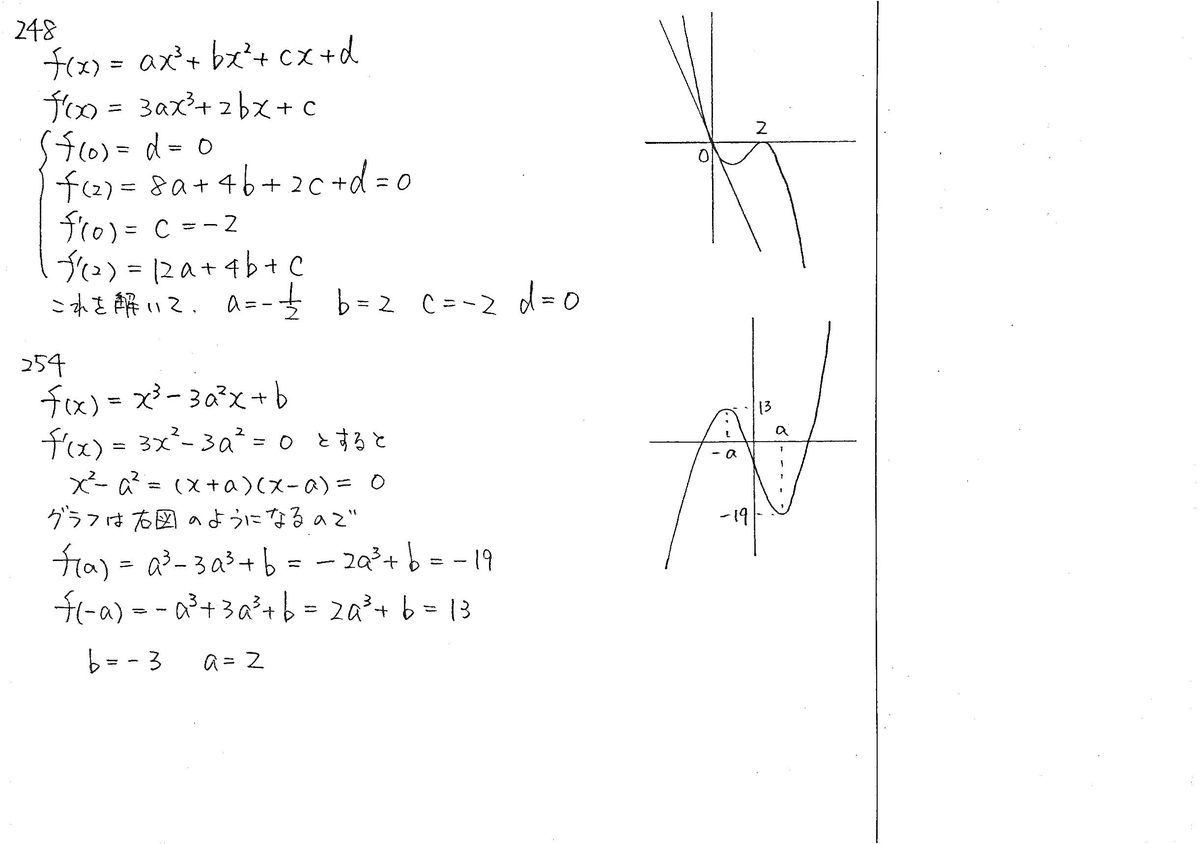 248
f(x) = ax³ + bx² + cx + d
f'(x) = 3ax³ + 2bx + c
f(0) = d = 0
f(2) = 8a + 4b + 2c + d = 0
f'(0) = c = -2
f'(2) = 12a + 4b + c
これを解いて. a = -1/2 b = 2 c = -2 d = 0
2
0
254
f(x) = x³ - 3a²x + b
f'(x) = 3x² - 3a² = 0 とすると
x² - a² = (x+a)(x-a) = 0
グラフは右図のようになるので
f(a) = a³ - 3a³ + b = -2a³ + b = -19
f(-a) = -a³ + 3a³ + b = 2a³ + b = 13
b = -3 a = 2
13
a
-a
-19